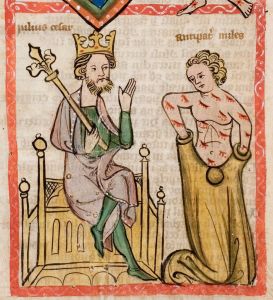 julius cesar
antipat' miles